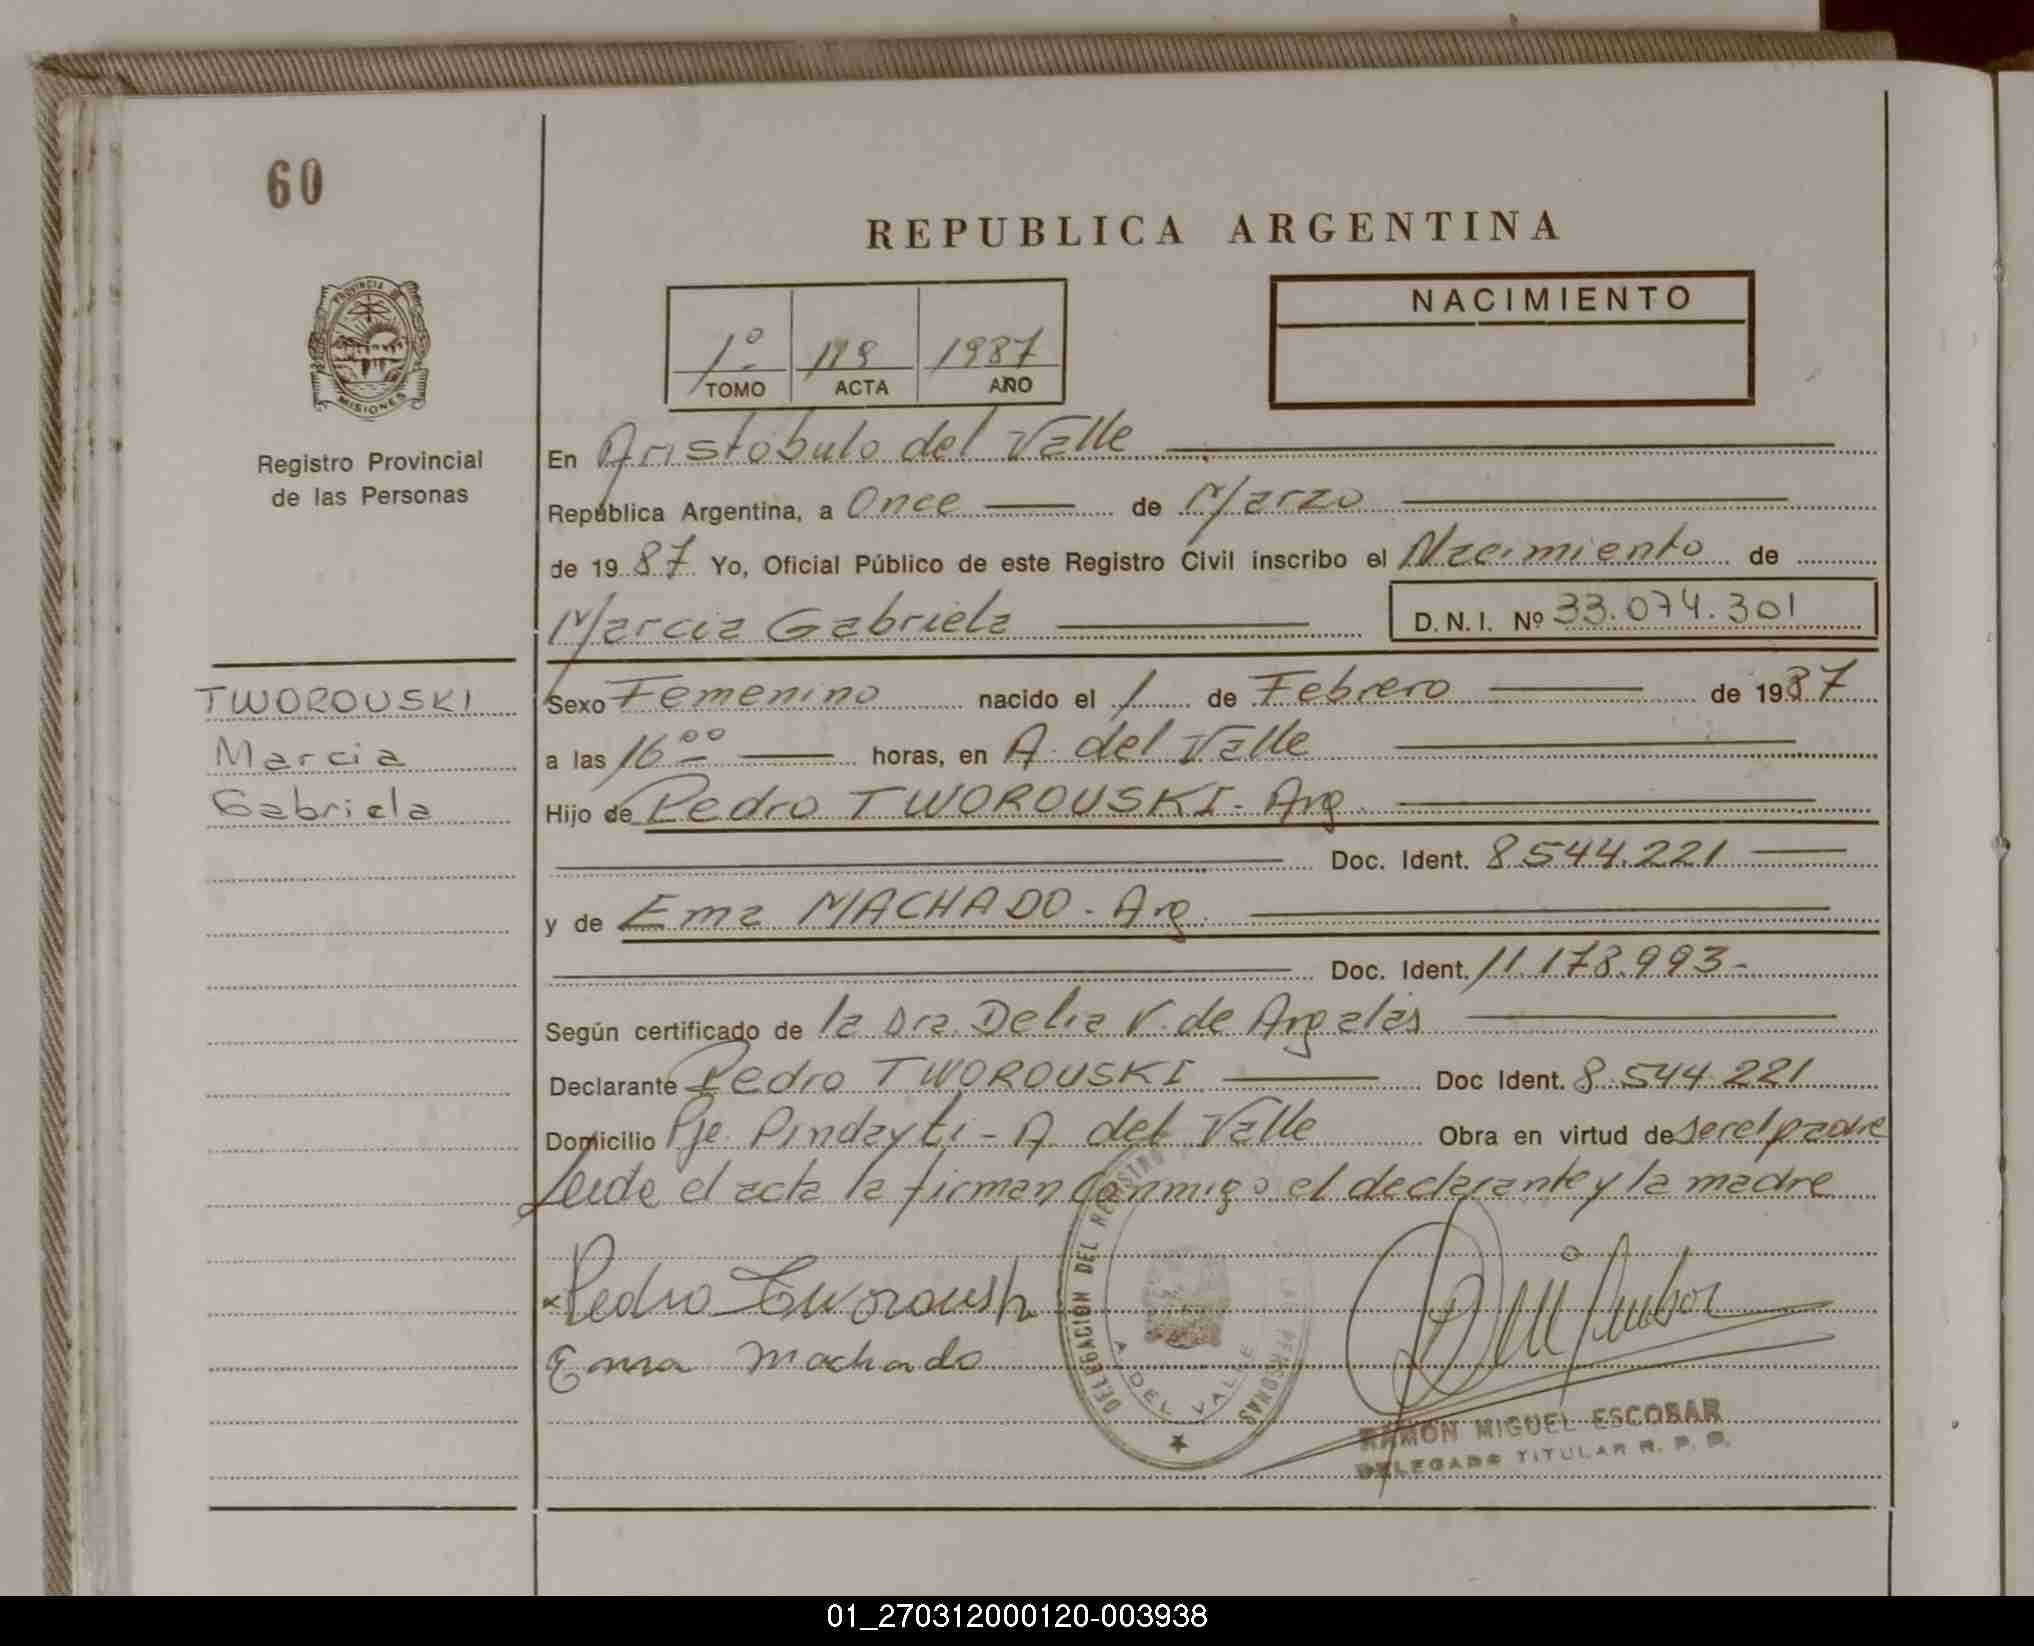 60
REPUBLICA ARGENTINA
PROVINCIA DE
MISIONES
Registro Provincial
de las Personas
NACIMIENTO
1º 119 1987
TOMO ACTA AÑO
En Aristobulo del Valle
República Argentina, a Once de Marzo
de 1987 Yo, Oficial Público de este Registro Civil inscribo el Nacimiento de
Marcia Gabriela D.N.I. Nº 33.074.301
TWOROUSKI
Marcia
Gabriela
Sexo Femenino nacido el 1 de Febrero de 1987
a las 16 00 horas, en A. del Valle
Hijo de Pedro TWOROUSKI - Arg.
Doc. Ident. 8.544.221
y de Ema MACHADO - Arg.
Doc. Ident. 11.178.993-
Según certificado de la Dra. Delia V. de Argalas
Declarante Pedro TWOROUSKI Doc Ident. 8.544.221
Domicilio Pje. Pindayti - A. del Valle Obra en virtud de ser el padre
Leida el acta la firman conmigo el declarante y la madre
x Pedro Tworouski
Ema Machado
DELEGACION DEL REGISTRO PERSONAS
A. DEL VALLE
RAMON MIGUEL ESCOBAR
DELEGADO TITULAR R. P. P.
01_270312000120-003938